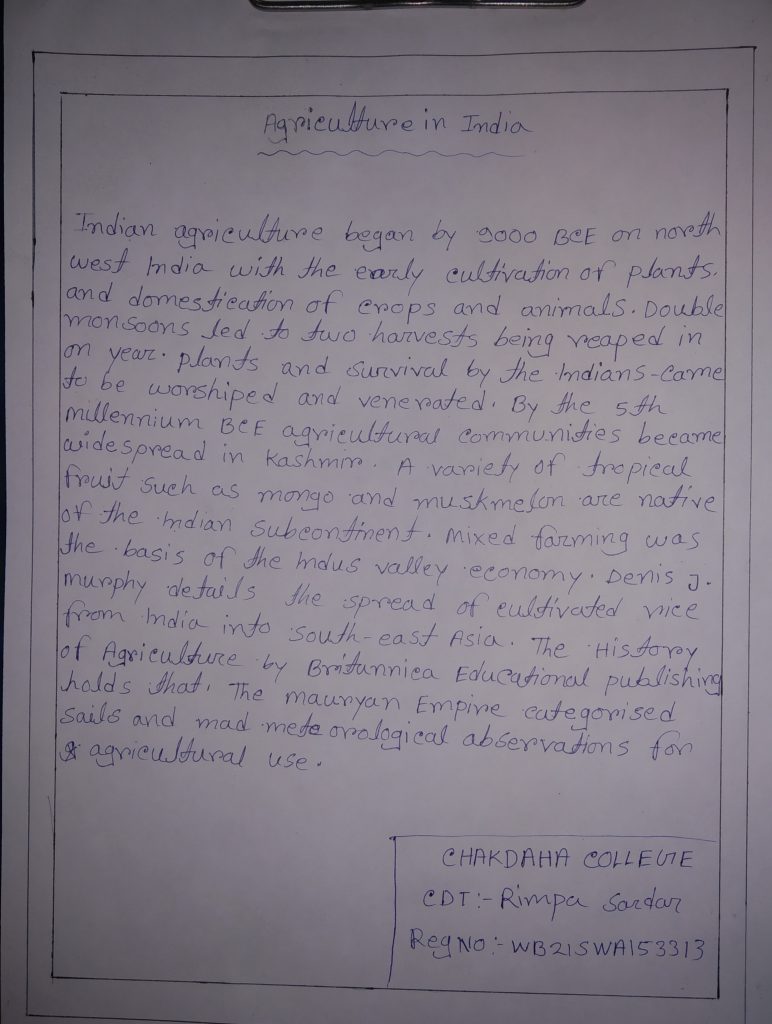 Agriculture in India
Indian agriculture began by 9000 BCE on north
west India with the early cultivation of plants.
and domestication of crops and animals. Double
monsoons led to two harvests being reaped in
on year. plants and survival by the Indians-came
to be worshiped and venerated. By the 5th
millennium BCE agricultural communities became
widespread in Kashmir. A variety of tropical
fruit such as mongo and muskmelon are native
of the Indian subcontinent. Mixed farming was
the basis of the Indus valley economy. Denis J.
murphy details the spread of cultivated rice
from India into South-east Asia. The History
of Agriculture by Britannica Educational publishing
holds that. The mauryan Empire categorised
sails and mad mete orological absorvations for
agricultural use.
CHAKDAHA COLLEGE
CDT:- Rimpa Sardar
Reg No:- WB21SWA153313